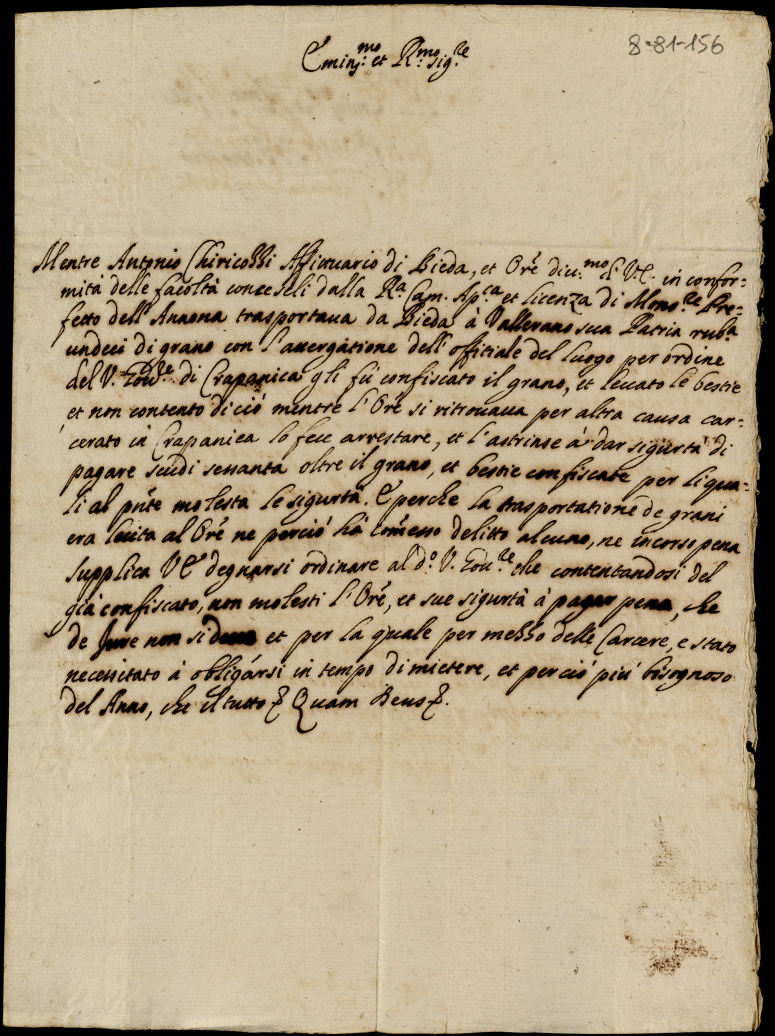 8-81-156
Emin.mo et R.mo Sig.re
Mentre Antonio Chiricozzi Affittuario di Bieda, et Ore di V.E. in confor=
mità delle facoltà conceseli dalla R.a Cam. Ap.ca et licenza di Mons.re Pre=
fetto dell'Annona trasportaua da Bieda à Vallerano sua Patria rub.a
undeci di grano con l'auergatione dell'offitiale del luogo per ordine
del V. Gou.re di Crapanica gli fù confiscato il grano, et leuato le bestie
et non contento di ciò mentre l'Ore si ritrouaua per altra causa car=
cerato in Crapanica lo fece arrestare, et l'astrinse à dar sigurtà di
pagare scudi sessanta oltre il grano, et bestie confiscate per li qua=
li al pnte molesta le sigurtà. E perche la trasportatione de grani
era licita al Ore ne perciò hà comesso delitto alcuno, ne incorso pena
supplica VE degnarsi ordinare al d.o V. Gou.re che contentandosi del
già confiscato, non molesti l'Ore, et sue sigurtà à pagar pena, che
de Jure non si deue et per la quale per mezzo delle Carcere, e stato
necessitato à obligarsi in tempo di mietere, et perciò più bisognoso
del Anno, che il tutto Quam Deus